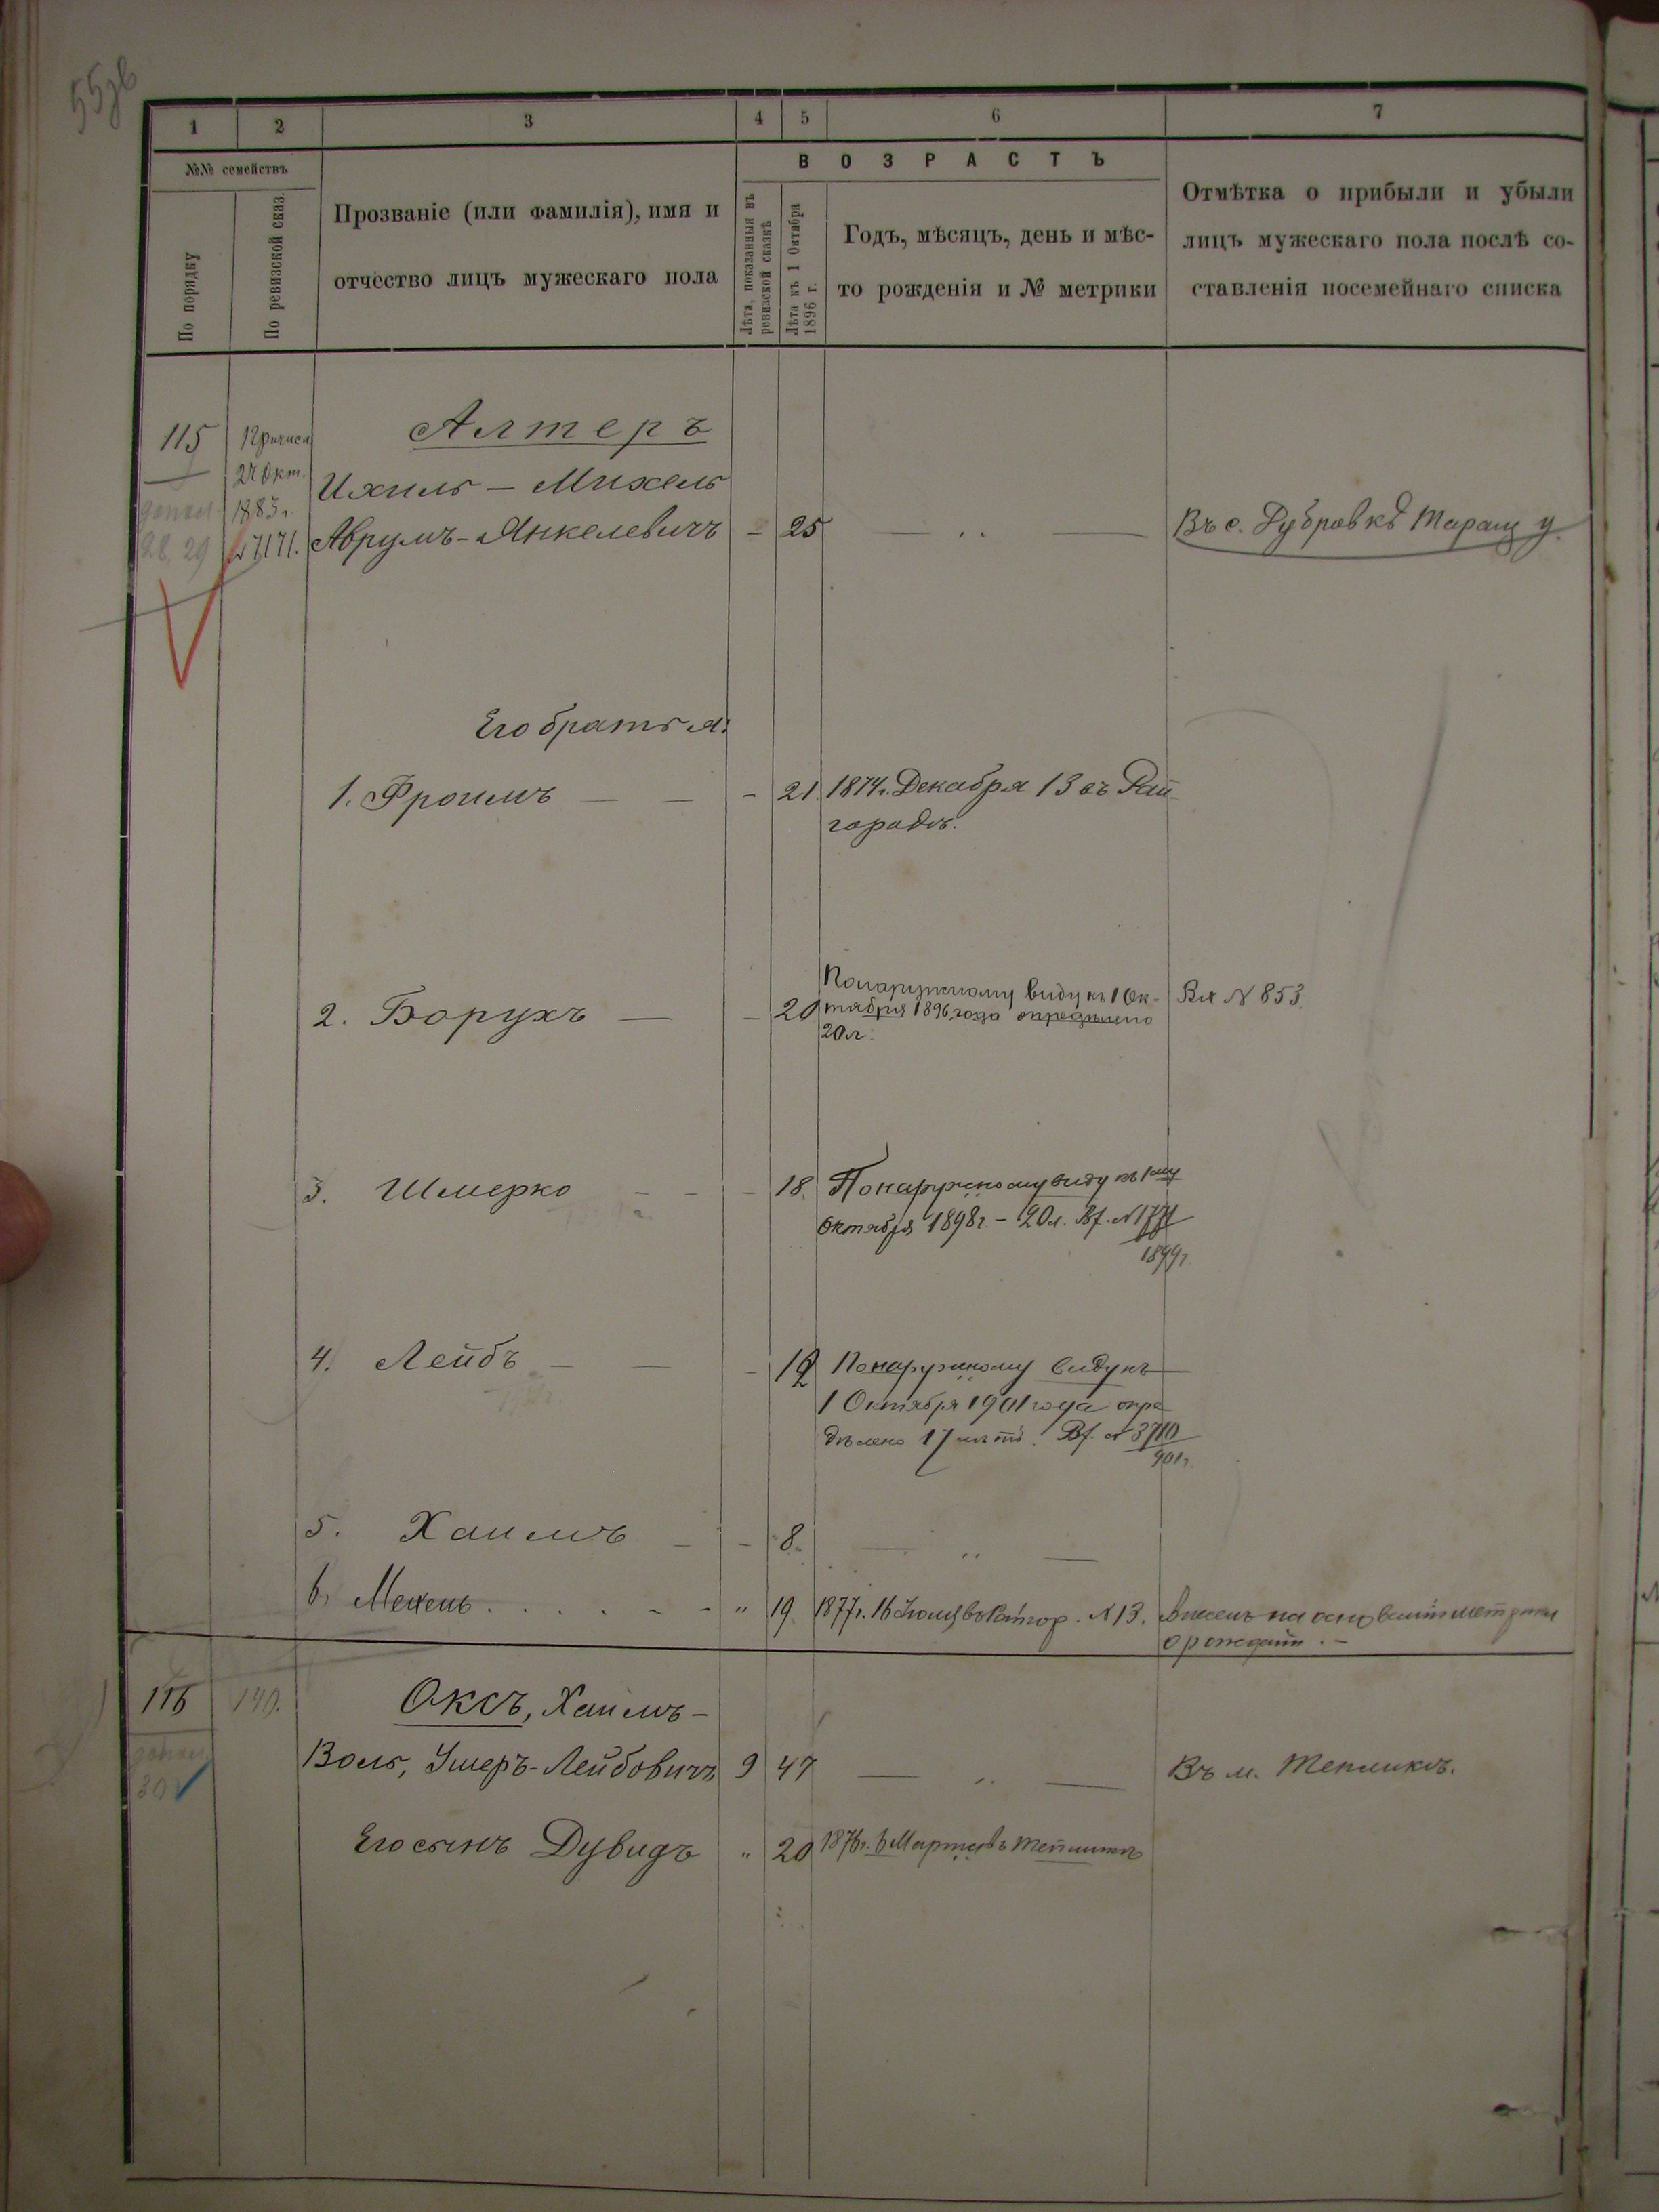 55об
1 2 3 4 5 6 7
№№ семействъ
По порядку
По ревизской сказ.
Прозваніе (или фамилія), имя и
отчество лицъ мужескаго пола
ВОЗРАСТЪ
Лѣта, показанныя въ
ревизской сказкѣ
Лѣта къ 1 Октября
1896 г.
Годъ, мѣсяцъ, день и мѣс-
то рожденія и № метрики
Отмѣтка о прибыли и убыли
лицъ мужескаго пола послѣ со-
ставленія посемейнаго списка
115 Причисл Алтеръ
27 Окт. Ихиль - Михель
1883 г.
№ 7171. Аврумъ-Янкелевичъ - 25 — „ — Въ с. Дубровкѣ Таращ у.
28. 29
Его братья:
1. Фроимъ — — - 21. 1874 г. Декабря 13 въ Рай-
городѣ.
2. Борухъ — - 20 Понаружному виду къ 1 Ок- Вх № 853.
тября 1896 года опредѣлено
20 л.
3. Шмерко - - - 18. Понаружному виду къ 1му
Октября 1898 г. - 20 л. Вх. №
1899 г.
4. Лейбъ — — - 12 Понаружному виду къ
1 Октября 1901 года опре-
дѣлено 17 лѣтъ. Вх. № 3710
901 г.
5. Хаимъ - - 8. — „ —
6. „ 19. 1877 г. 16 № 13. Внесенъ на основаніи метрики
о рожденіи. -
116 140. Оксъ, Хаимъ-
Воль, Ушеръ-Лейбовичъ 9 47 — „ — Въ м. Тепликѣ.
30
Его сынъ Дувидъ „ 20 1876 г. 6 Марта въ Тепликѣ